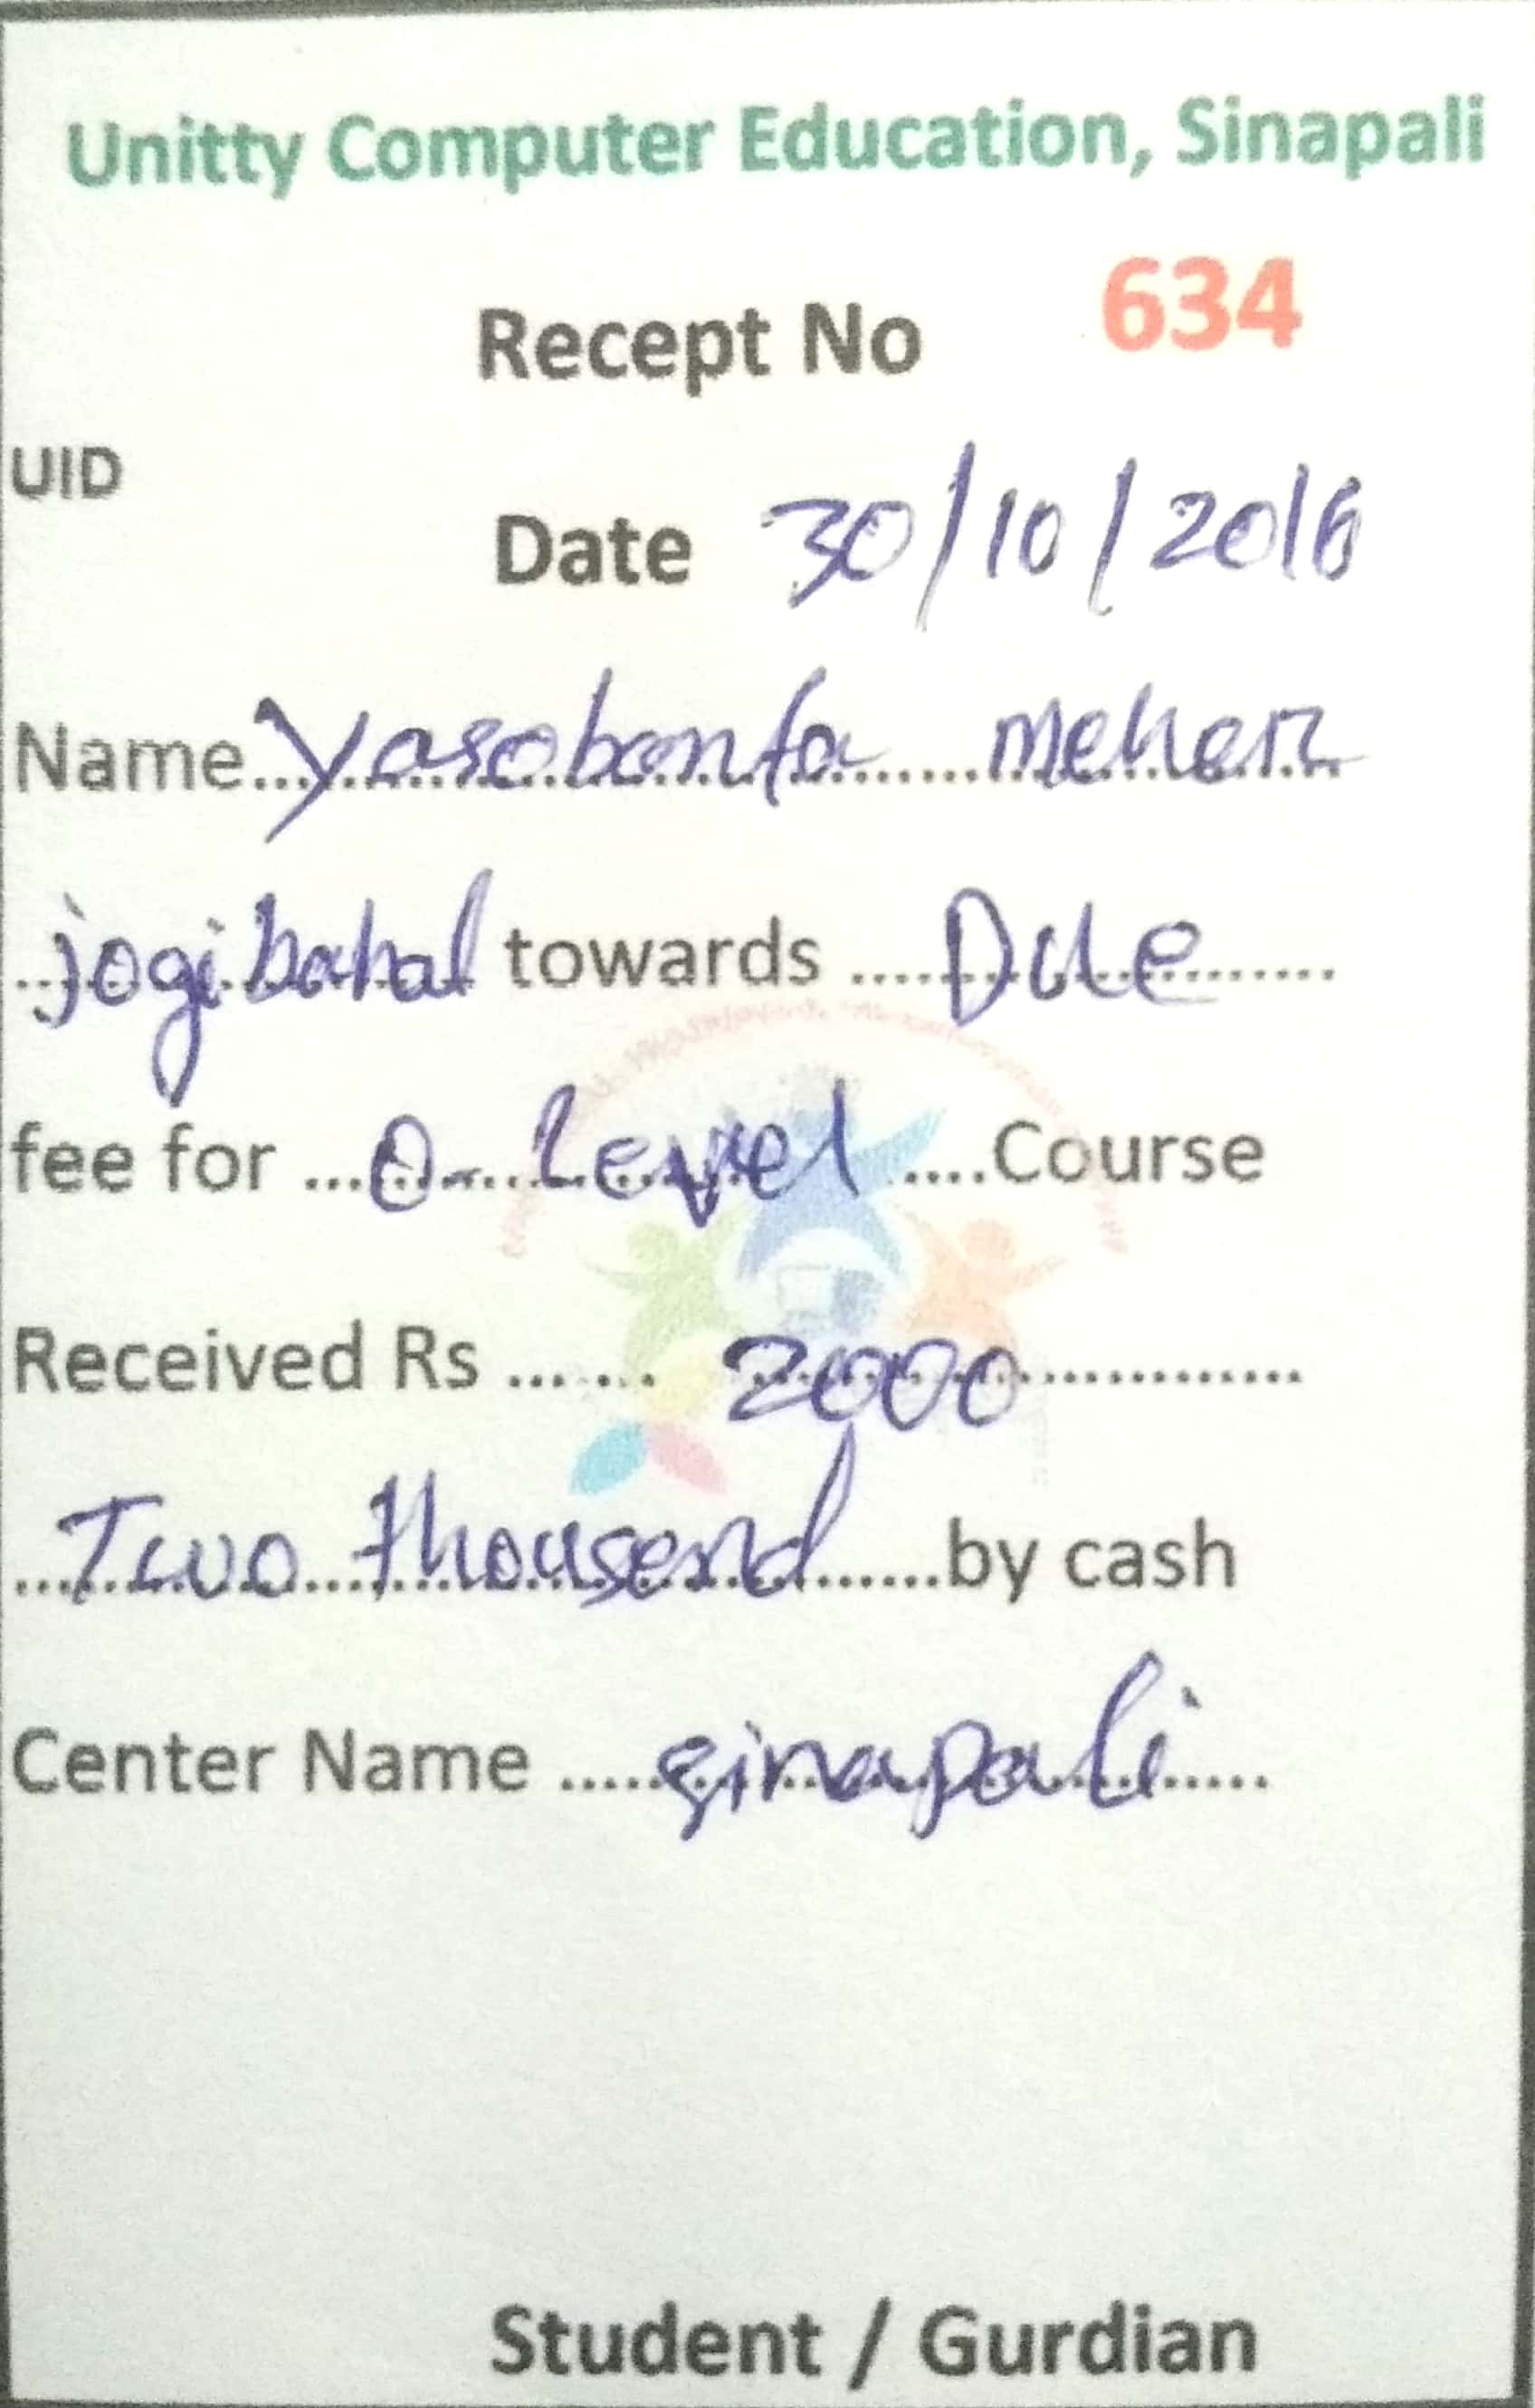 Unitty Computer Education, Sinapali
Recept No 634
UID
Date 30/10/2016
Name...Yasobanta meher
jogibahal towards ....Due......
fee for ...O-Level....Course
Received Rs ...... 2000..............
...Two thousend.......by cash
Center Name .....sinapali.....
Student / Gurdian